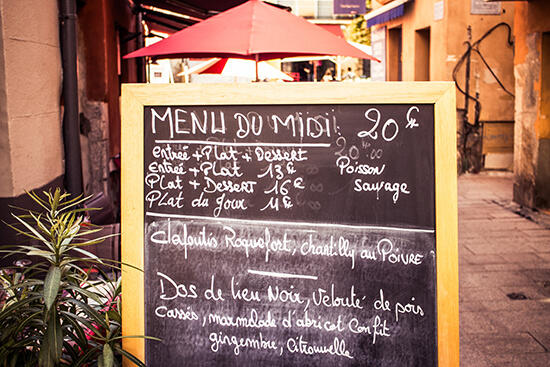 MENU DU MIDI 20€
Entrée + Plat + Dessert
Entrée + Plat 13€
Plat + Dessert 16€
Plat du jour 11€
Poisson
Sauvage
Clafoutis Roquefort, chantilly au POIVRE
Dos de lieu Noir, velouté de pois
cassés, marmelade d'abricot Confit
gingembre, Citrouille